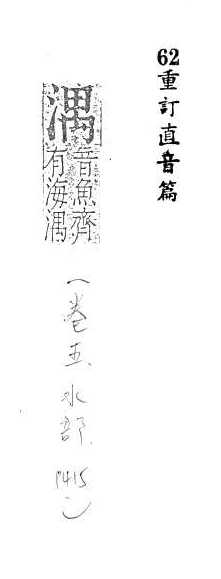 62重訂直音篇
湡
音魚齊
有海湡
(卷五、水部、P415)